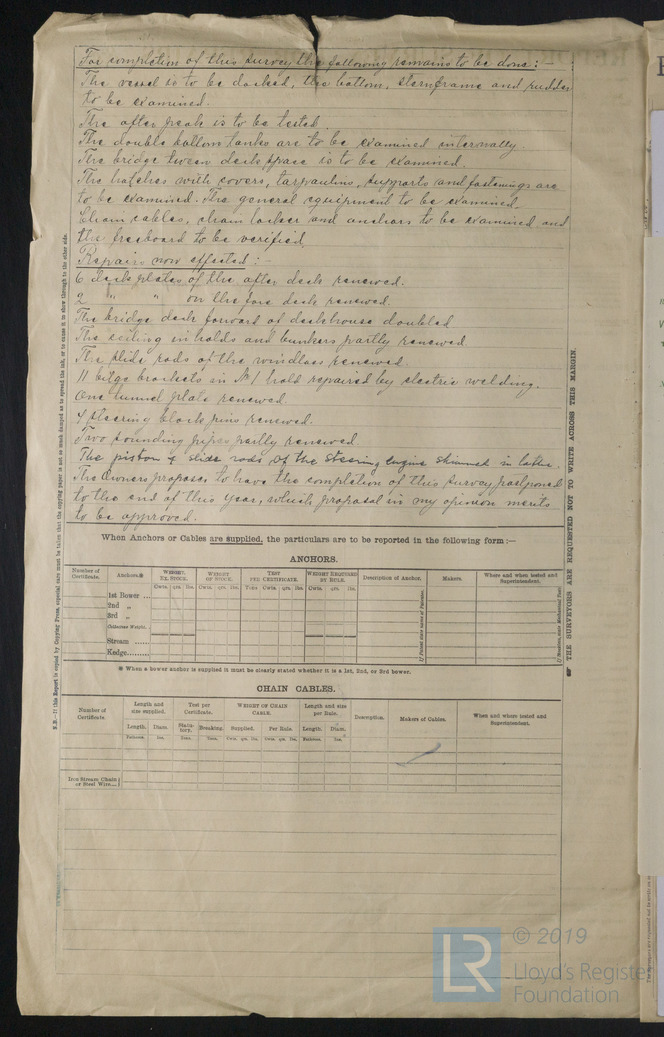 For completion of this survey the following remains to be done :-
The vessel is to be docked, the bottom, sternframe and rudder
to be examined.
The after peak is to be tested.
The double bottom tanks are to be examined internally.
The bridge tween deck space is to be examined.
The hatches with covers, tarpaulins, supports and fastenings are
to be examined. The general equipment to be examined.
Chain cables, chain locker and anchors to be examined and
the freeboard to be verified
Repairs now effected :-
6 deckplates of the after deck renewed.
2 " " on the fore deck renewed.
The bridge deck forward of deckhouse doubled
The ceiling in holds and bunkers partly renewed
The slide rods of the windlass renewed.
11 bilge brackets in № 1 hold repaired by electric welding.
One tunnel plate renewed.
4 steering block pins renewed.
Two sounding pipes partly renewed
The piston & slide rods of the steering engine skimmed in lathe.
The Owners propose to have the completion of this survey postponed
to the end of this year, which proposal in my opinion merits
to be approved.
When Anchors or Cables are supplied, the particulars are to be reported in the following form :—
ANCHORS.
Number of Certificate. Anchors.* WEIGHT, EX. STOCK. WEIGHT OF STOCK. TEST PER CERTIFICATE. WEIGHT REQUIRED BY RULE. Description of Anchor. Makers. Where and when tested and Superintendent.
Cwts. qrs. lbs. Cwts. qrs. lbs. Tons Cwts. qrs. lbs. Cwts. qrs. lbs.
1st Bower ...
2nd „
3rd „
Collective Weight.
Stream ......
Kedge......
* When a bower anchor is supplied it must be clearly stated whether it is a 1st, 2nd, or 3rd bower.
CHAIN CABLES.
Number of Certificate. Length and size supplied. Test per Certificate. WEIGHT OF CHAIN CABLE. Length and size per Rule. Description. Makers of Cables. When and where tested and Superintendent.
Length. Diam. Statutory. Breaking. Supplied. Per Rule. Length. Diam.
Fathoms. Ins. Tons. Tons. Cwts. qrs. lbs. Cwts. qrs. lbs. Fathoms. Ins.
Iron Stream Chain or Steel Wire...
N.B.—If this Report is copied by Copying Press, especial care must be taken that the copying paper is not so much damped as to spread the ink, or to cause it to show through to the other side.
THE SURVEYORS ARE REQUESTED NOT TO WRITE ACROSS THIS MARGIN.
LR
© 2019
Lloyd's Register
Foundation